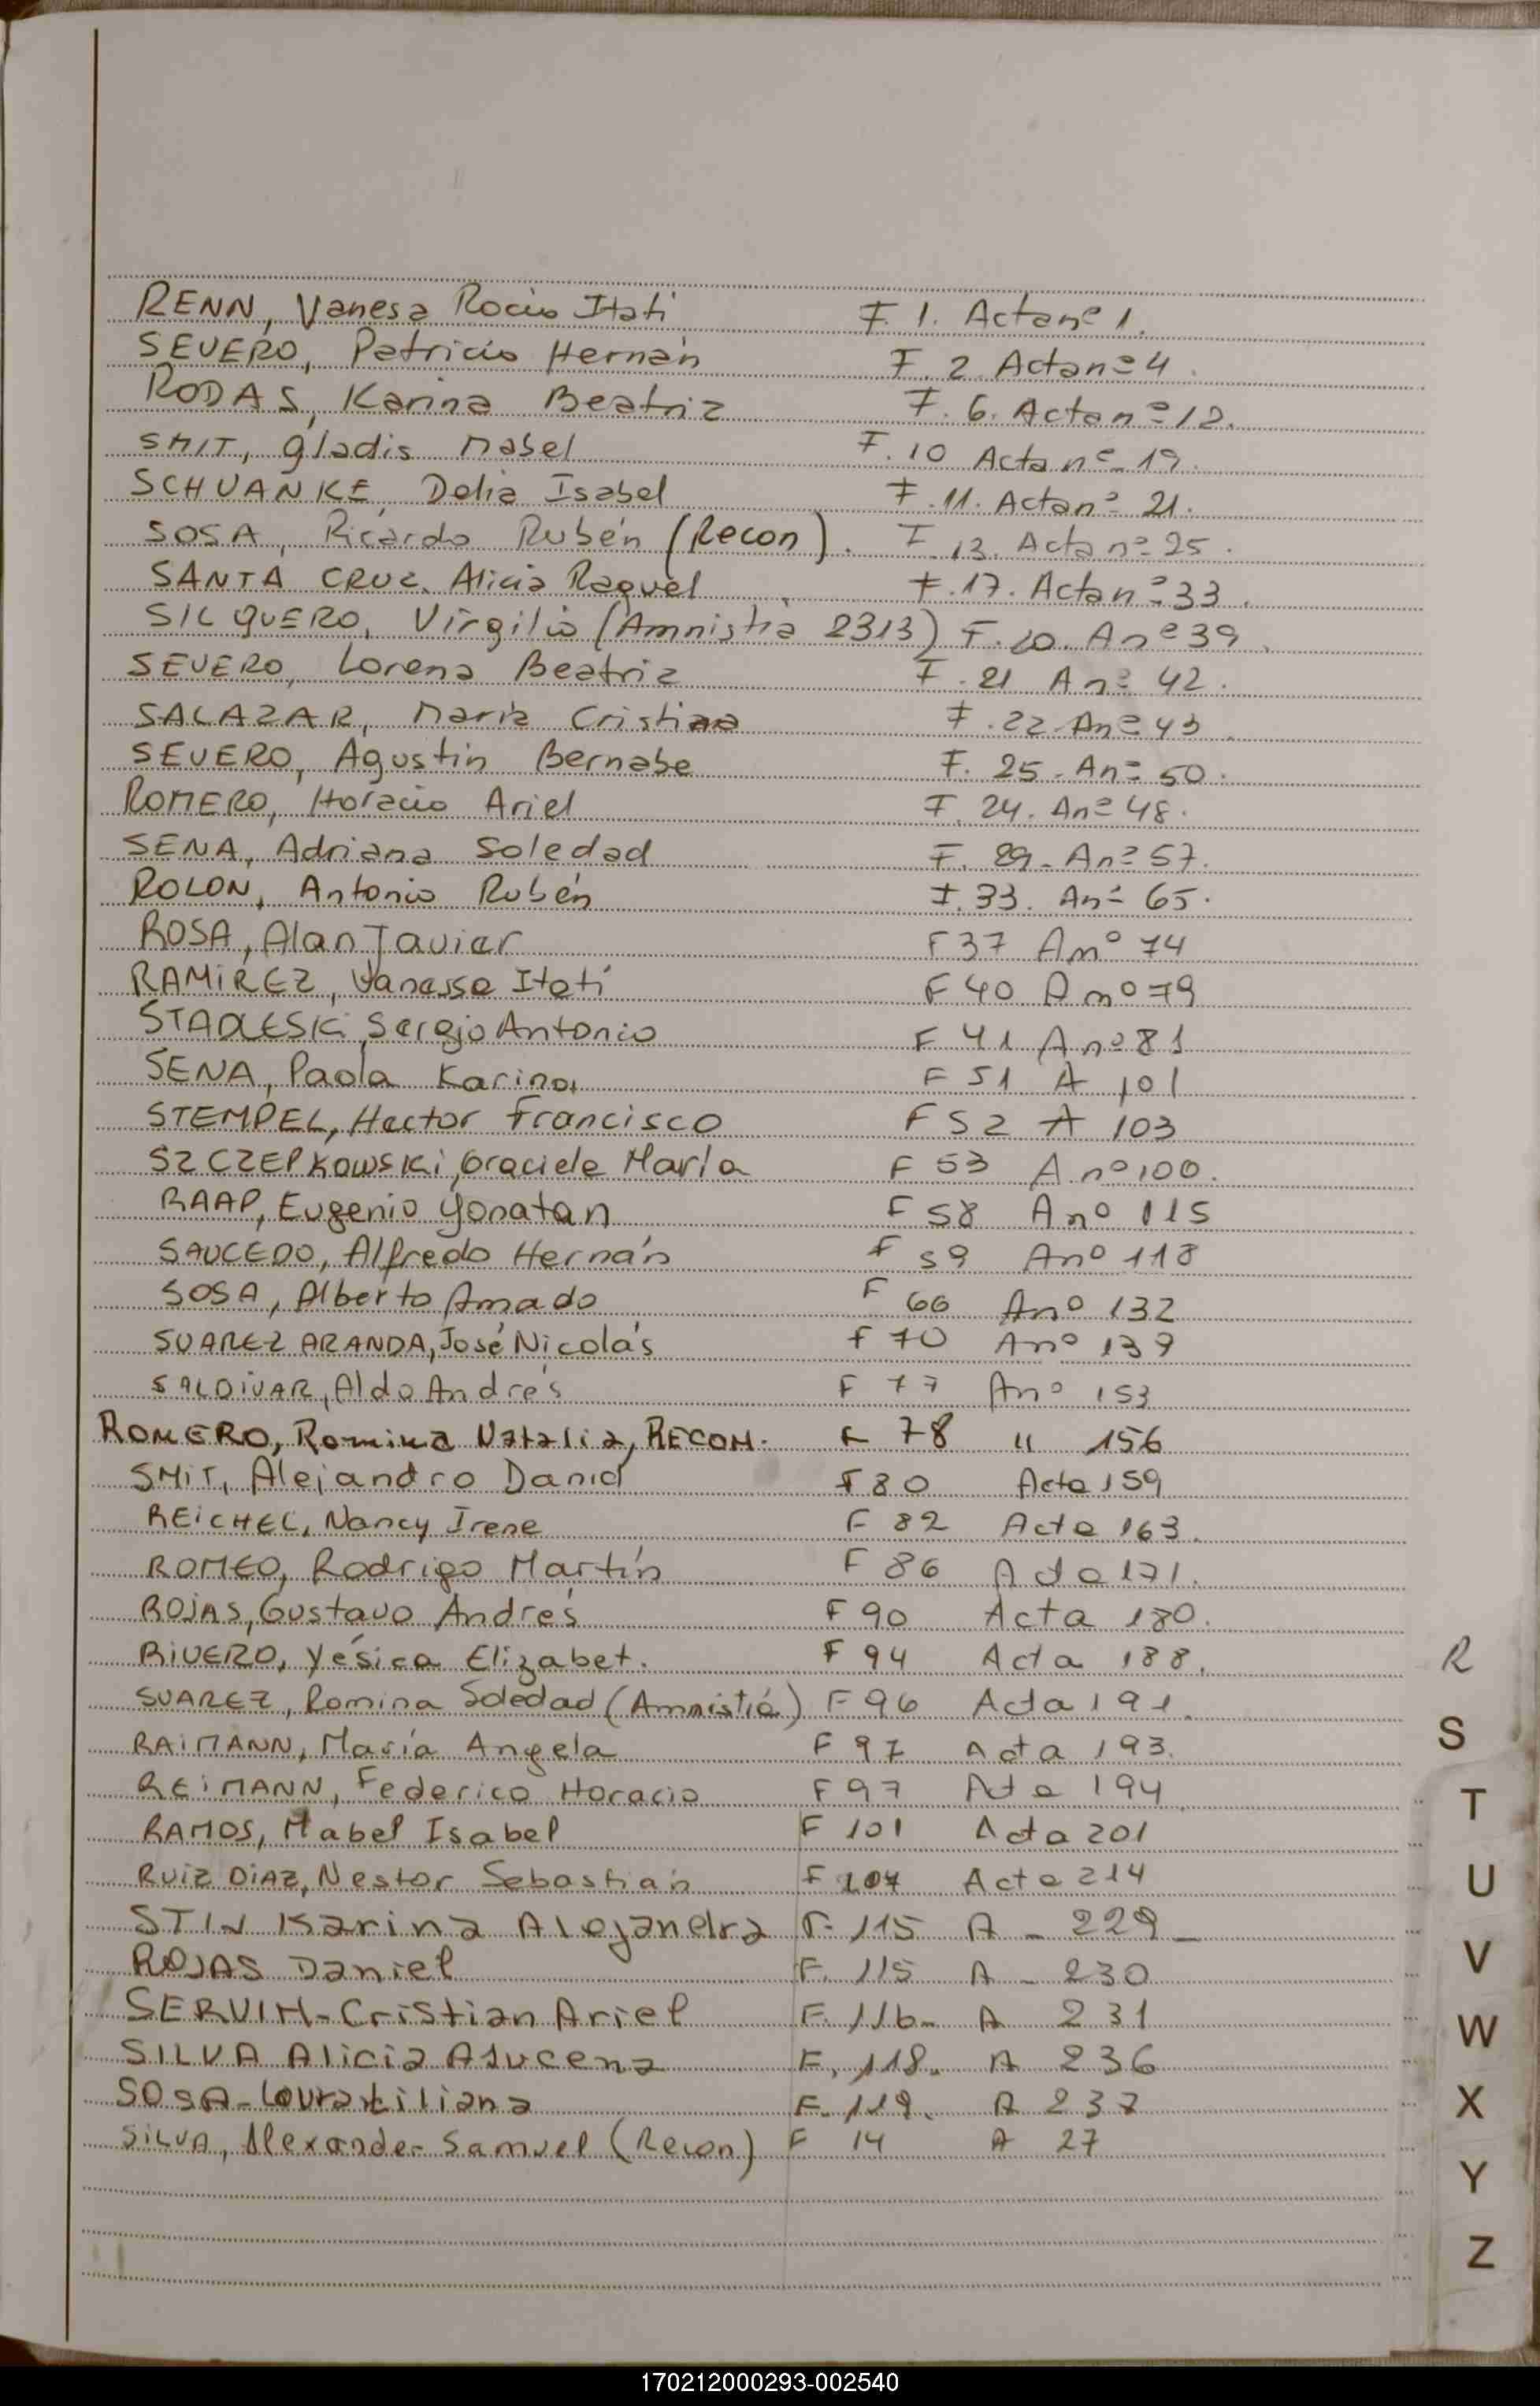 RENN, Vanesa Rocio Itati F. 1. Acta nº 1.
SEVERO, Patricio Hernán F. 2. Acta nº 4.
RODAS, Karina Beatriz F. 6. Acta nº 12.
SMIT, Gladis Mabel F. 10 Acta nº 19.
SCHUANKE, Delia Isabel F. 11. Acta nº 21.
SOSA, Ricardo Rubén (Recon). F. 13. Acta nº 25.
SANTA CRUZ, Alicia Raquel F. 17. Acta nº 33.
SILQUERO, Virgilio (Amnistia 2313) F. 20. A nº 39.
SEVERO, Lorena Beatriz F. 21 A nº 42.
SALAZAR, Maria Cristina F. 22 An º 43.
SEVERO, Agustin Bernabe F. 25 - An º 50.
ROMERO, Horacio Ariel F. 24. An º 48.
SENA, Adriana Soledad F. 29 - An º 57.
ROLON, Antonio Rubén F. 33. An º 65.
ROSA, Alan Javier F 37 A nº 74
RAMIREZ, Vanessa Itati F 40 A nº 79
STADLESKI, Sergio Antonio F 41 A nº 81
SENA, Paola Karina F 51 A 101
STEMPEL, Hector Francisco F 52 A 103
SZCZEPKOWSKI, Graciela María F 53 A nº 100.
RAAP, Eugenio Yonatan F 58 A nº 115
SAUCEDO, Alfredo Hernán F 59 A nº 118
SOSA, Alberto Amado F 66 A nº 132
SUAREZ ARANDA, José Nicolás F 70 A nº 139
SALDIVAR, Aldo Andrés F 77 A nº 153
ROMERO, Romina Natalia, RECON. F 78 " 156
SMIT, Alejandro Daniel F 80 Acta 159
REICHEL, Nancy Irene F 82 Acta 163.
ROMEO, Rodrigo Martín F 86 Acta 171.
ROJAS, Gustavo Andrés F 90 Acta 180.
RIVERO, Yésica Elizabet. F 94 Acta 188.
SUAREZ, Romina Soledad (Amnistiá) F 96 Acta 191.
RAIMANN, María Angela F 97 Acta 193.
REIMANN, Federico Horacio F 97 Acta 194
RAMOS, Mabel Isabel F 101 Acta 201
RUIZ DIAZ, Nestor Sebastián F 107 Acta 214
STIN Karina Alejandra F. 115 A - 229 -
ROJAS Daniel F. 115 A - 230
SERVIM - Cristian Ariel F. 116 - A 231
SILVA Alicia Asucena F. 118. A 236
SOSA - Liliana F. 119. A 237
SILVA, Alexander Samuel (Recon) F 14 A 27
R
S
T
U
V
W
X
Y
Z
170212000293-002540